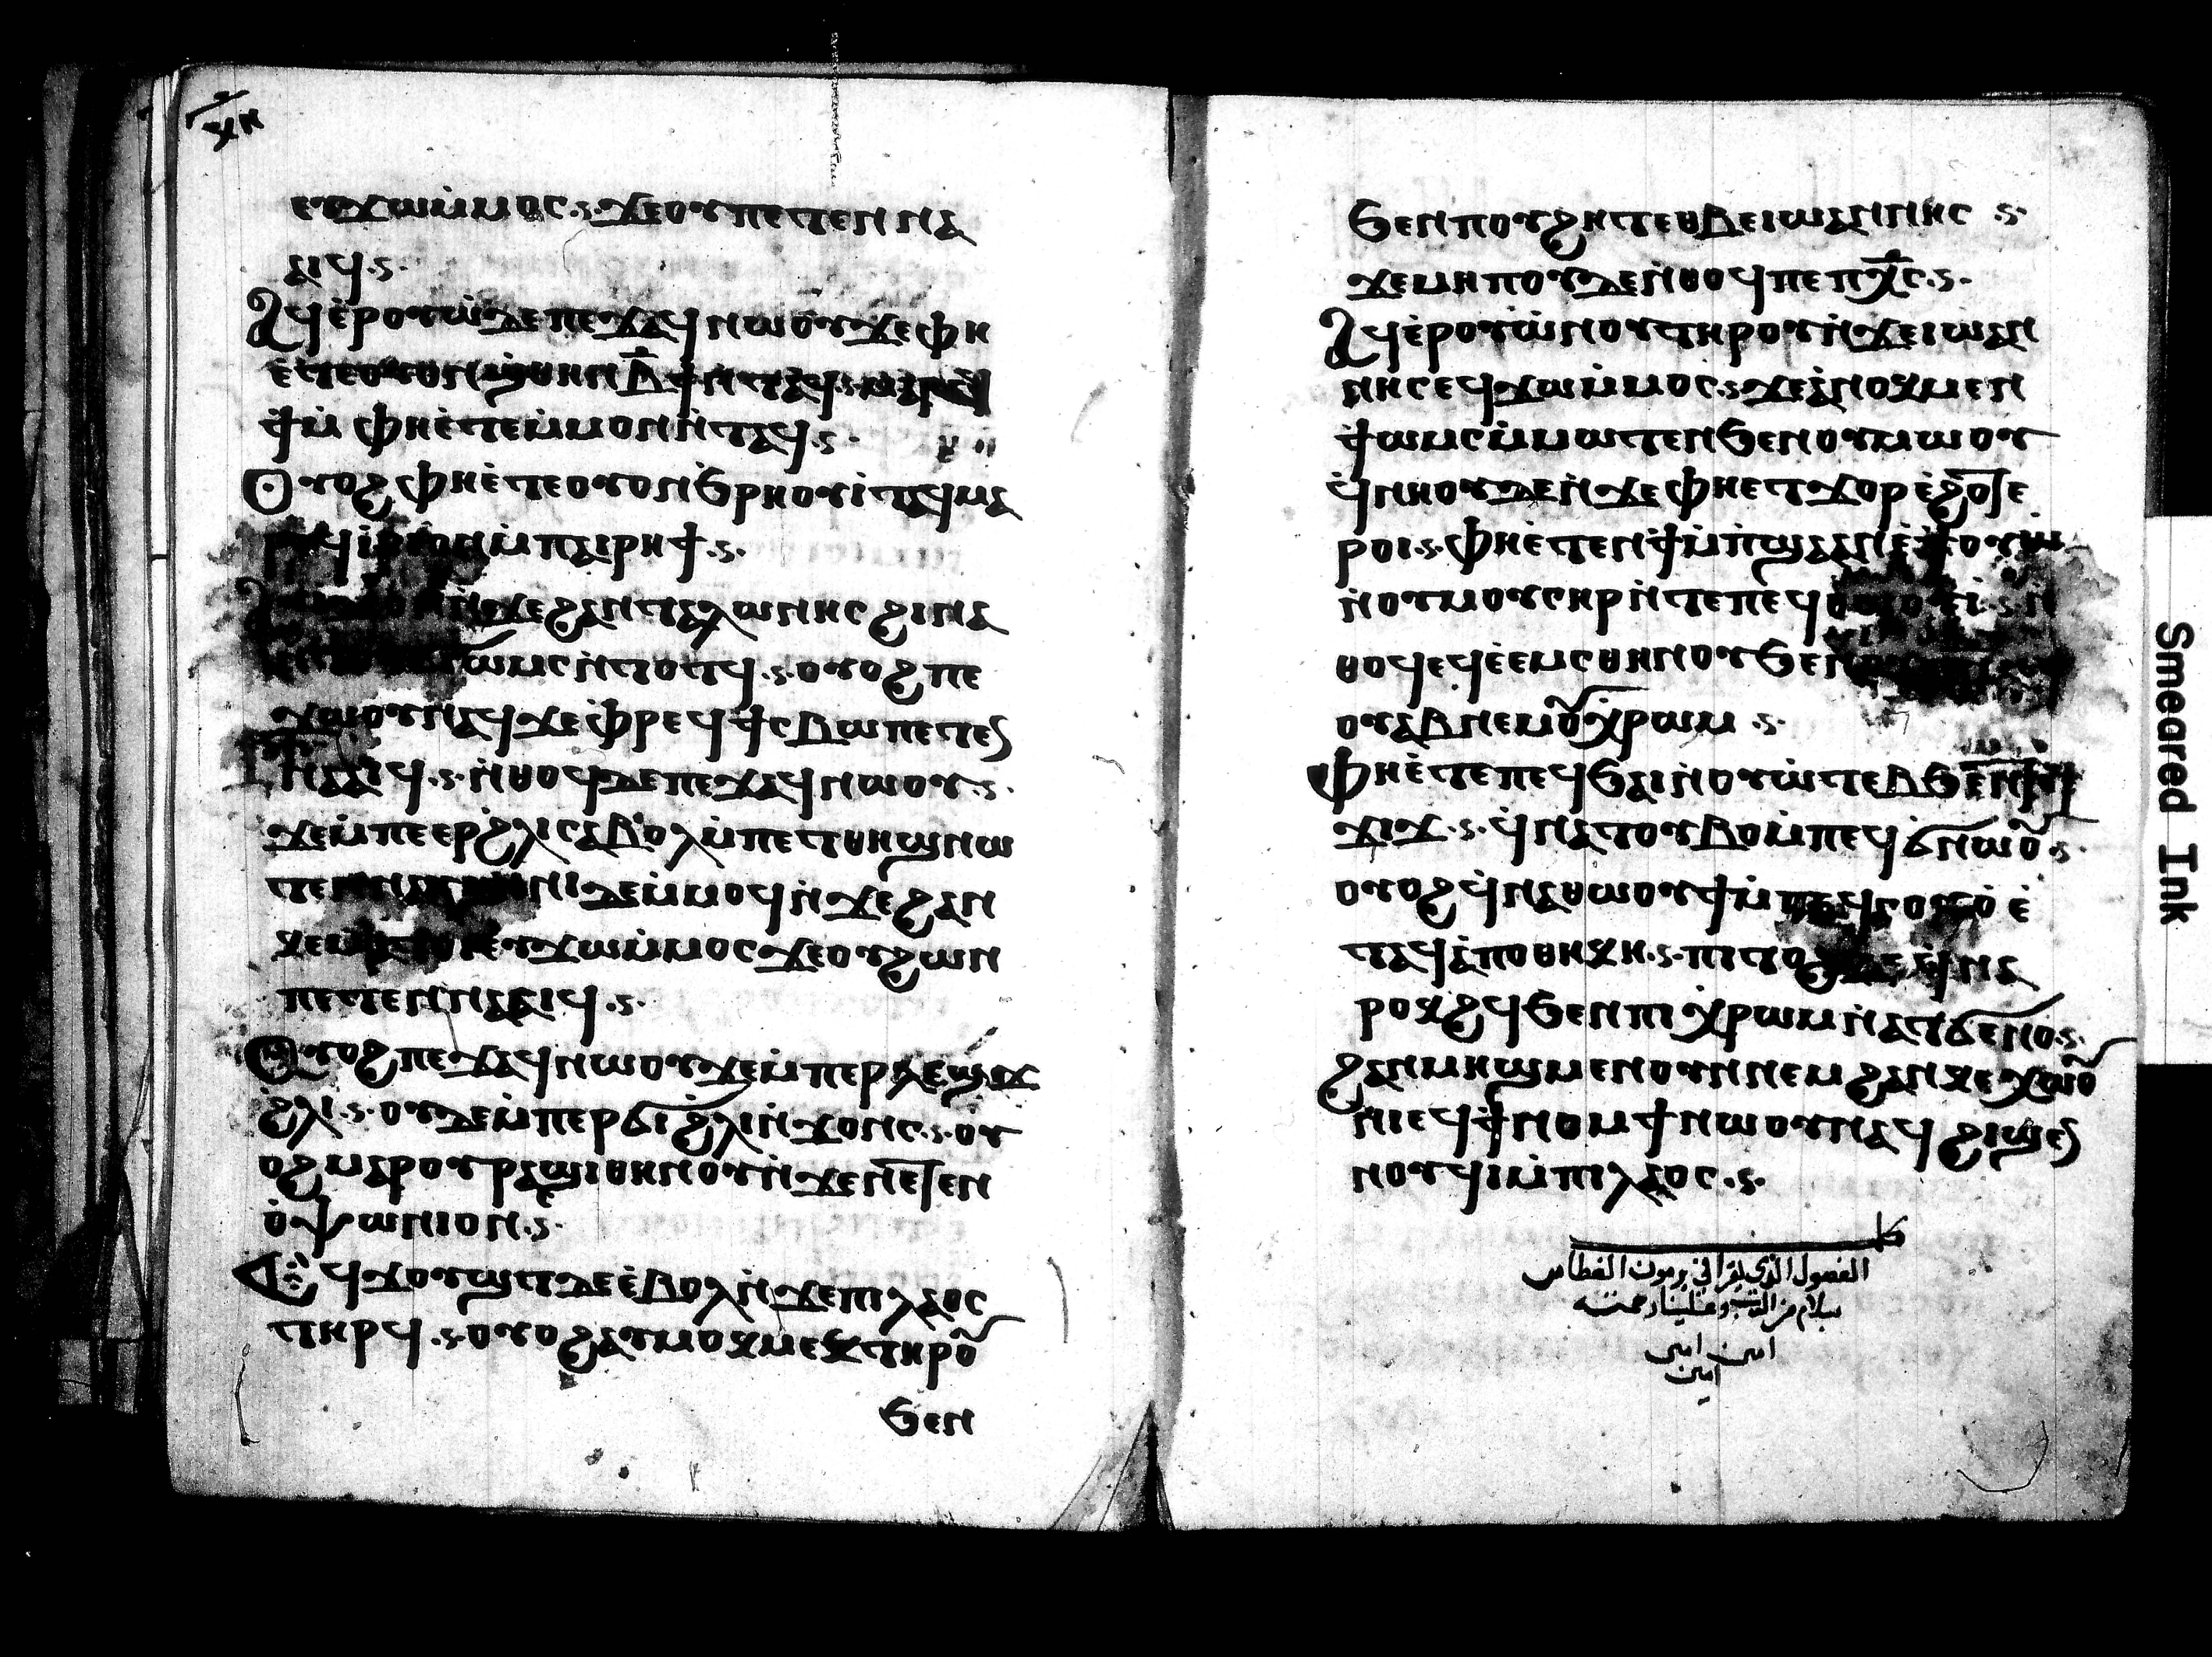 ⲉⲩϫⲱⲙ̀ⲙⲟⲥ ϫⲉⲟⲩⲡⲉⲧⲉⲛⲛⲁ
ⲁⲓϥ
Ⲁϥⲉ̀ⲣⲟⲩⲱ̀ⲇⲉⲡⲉϫⲁϥⲛⲱⲟⲩϫⲉⲫⲏ
ⲉ̀ⲧⲉⲟⲩⲟⲛϣ̀ⲑⲏⲛⲃ̅ϯⲛ̀ⲧⲁϥ
ϯⲙ̀ⲫⲏⲉ̀ⲧⲉⲙ̀ⲙⲟⲛⲛ̀ⲧⲁϥ
Ⲟⲩⲟϩⲫⲏⲉ̀ⲧⲉⲟⲩⲟⲛϧⲣⲏⲟⲩⲓ̀ⲧⲁϥⲙⲁ
ⲙ̀ⲡⲁⲓⲣⲏϯ
ϫⲉϩⲁⲛⲧⲉⲗⲱⲛⲏⲥϩⲓⲛⲁ
ⲱⲙⲥⲛ̀ⲧⲟⲧϥ ⲟⲩⲟϩⲡⲉ
ϫⲱⲟⲩⲛⲁϥϫⲉⲫ̀ⲣⲉϥϯⲥⲃⲱⲡⲉⲧⲉⲛ
ⲛⲁⲁⲓϥ ⲛ̀ⲑⲟϥⲇⲉⲡⲉϫⲁϥⲛⲱⲟⲩ
ϫⲉⲙ̀ⲡⲉⲉⲣϩ̀ⲗⲓⲥⲁⲃⲟⲗⲙ̀ⲡⲉⲧⲑⲏϣⲛⲱ
ⲧⲉⲛ ⲇⲉⲙ̀ⲙⲟϥⲛ̀ϫⲉϩⲁⲛ
ⲉⲩϫⲱⲙ̀ⲙⲟⲥϫⲉⲟⲩϩⲱⲛ
ⲡⲉⲧⲉⲛⲛⲁⲁⲓϥ
Ⲟⲩⲟϩⲡⲉϫⲁϥⲛⲱⲟⲩϫⲉⲙ̀ⲡⲉⲣ
ϩ̀ⲗⲓ ⲟⲩⲇⲉⲙ̀ⲡⲉⲣϭⲓϩ̀ⲗⲓⲛ̀ϫⲟⲛⲥ ⲟⲩ
ⲟϩⲙⲁⲣⲟⲩⲣⲁϣⲓⲑⲏⲛⲟⲩⲛ̀ϫⲉⲛⲉⲧⲉⲛ
ⲟ̀ⲯⲱⲛⲓⲟⲛ
Ⲉϥϫⲟⲩϣⲧⲇⲉⲉ̀ⲃⲟⲗⲛ̀ϫⲉⲡⲓⲗⲁⲟⲥ
ⲧⲏⲣϥ ⲟⲩⲟϩⲁⲩⲙⲟⲕⲙⲉⲕⲧⲏⲣⲟⲩ
ϧⲉⲛ
ϧⲉⲛⲡⲟⲩϩⲏⲧⲉⲑⲃⲉⲓⲱⲁⲛⲛⲏⲥ
ϫⲉⲙⲏⲡⲟⲩⲇⲉⲛ̀ⲑⲟϥⲡⲉⲡⲭ̅ⲥ
Ⲁϥⲉ̀ⲣⲟⲩⲱ̀ⲛⲟⲩⲧⲏⲣⲟⲩⲛ̀ϫⲉⲓⲱⲁⲛ
ⲛⲏⲥⲉϥϫⲱⲙ̀ⲙⲟⲥ ϫⲉⲁ̀ⲛⲟⲕⲙⲉⲛ
ϯⲱⲙⲥⲙ̀ⲙⲱⲧⲉⲛϧⲉⲛⲟⲩⲙⲱⲟⲩ
ϥ̀ⲛⲏⲟⲩⲇⲉⲛ̀ϫⲉⲫⲏⲉⲧϫⲟⲣⲉ̀ϩⲟⲧⲉ
ⲣⲟⲓ ⲫⲏⲉ̀ⲧⲉⲛϯⲙ̀ⲡϣⲁⲁⲛ
ⲛ̀ⲟⲩⲙⲟⲩⲥⲏⲣⲛ̀ⲧⲉⲡⲉϥ ⲛ
ⲑⲟϥⲉϥⲉ̀ⲉⲙⲥⲑⲏⲛⲟⲩϧⲉⲛ
ⲟⲩⲁⲃⲛⲉⲙⲟⲩⲭ̀ⲣⲱⲙ
Ⲫⲏⲉ̀ⲧⲉⲡⲉϥϧⲁⲓⲛ̀ⲟⲩⲱ̀ⲧⲉⲃϧⲉⲛ
ϫⲓϫ ϥ̀ⲛⲁⲧⲟⲩⲃⲟⲙ̀ⲡⲉϥϭⲛⲱⲟⲩ
ⲟⲩⲟϩϥ̀ⲛⲁⲑⲱⲟⲩϯⲙ̀ⲡⲉϥⲥⲟⲩⲟ̀ⲉ̀
ⲧⲁϥⲁ̀ⲡⲟⲑⲏⲕⲏ ⲡⲓⲧⲟϩⲇⲉϥ̀ⲛⲁ
ⲣⲟⲕϩϥϧⲉⲛⲡⲓⲭ̀ⲣⲱⲙⲛ̀ⲁⲧϭⲉⲛⲟ
ϩⲁⲛⲙⲏϣⲙⲉⲛⲟⲩⲛⲛⲉⲙϩⲁⲛⲕⲉⲭⲱⲟⲩ
ⲛⲓⲉϥϯⲛⲟⲙϯⲛⲱⲟⲩⲛⲁϥϩⲓϣⲉⲛ
ⲛⲟⲩϥⲓⲙ̀ⲡⲓⲗⲁⲟⲥ
الفصول الذي يقرا في برمون الغطاس
بسلام من الرب وعلينا رحمته
امين امين
امين
Smeared Ink